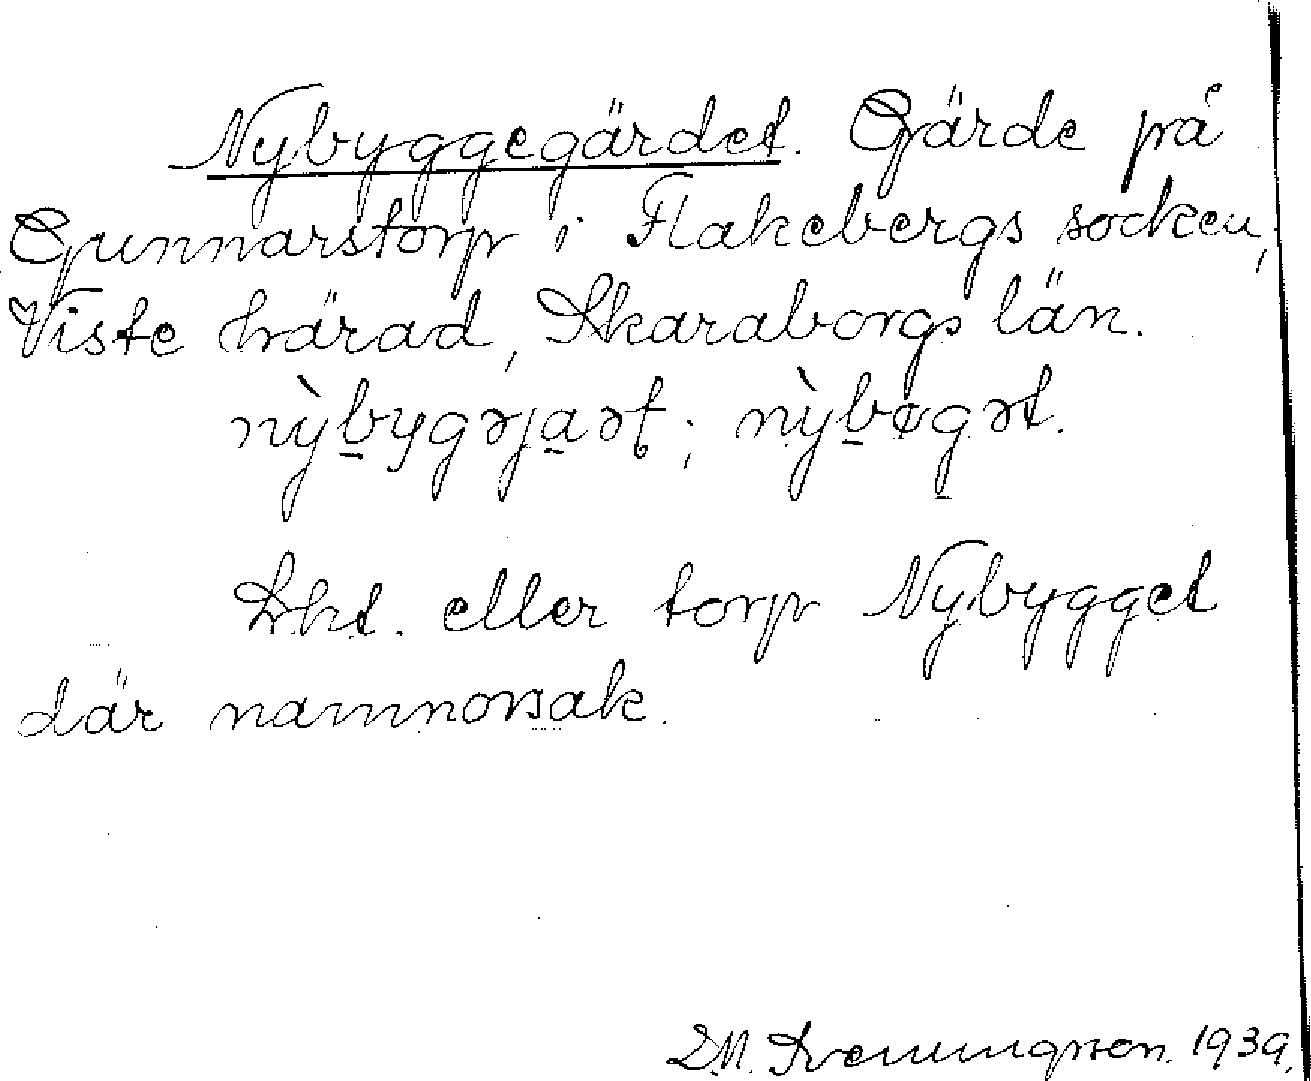 Nybyggegärdet. Gärde på
Gunnarstorp i Flakebergs socken,
Viste härad, Skaraborgs län.
nỳb̲ygəja̲ət; nỳb̲øgət.
Lht. eller torp Nybygget
där namnorsak.
1939.